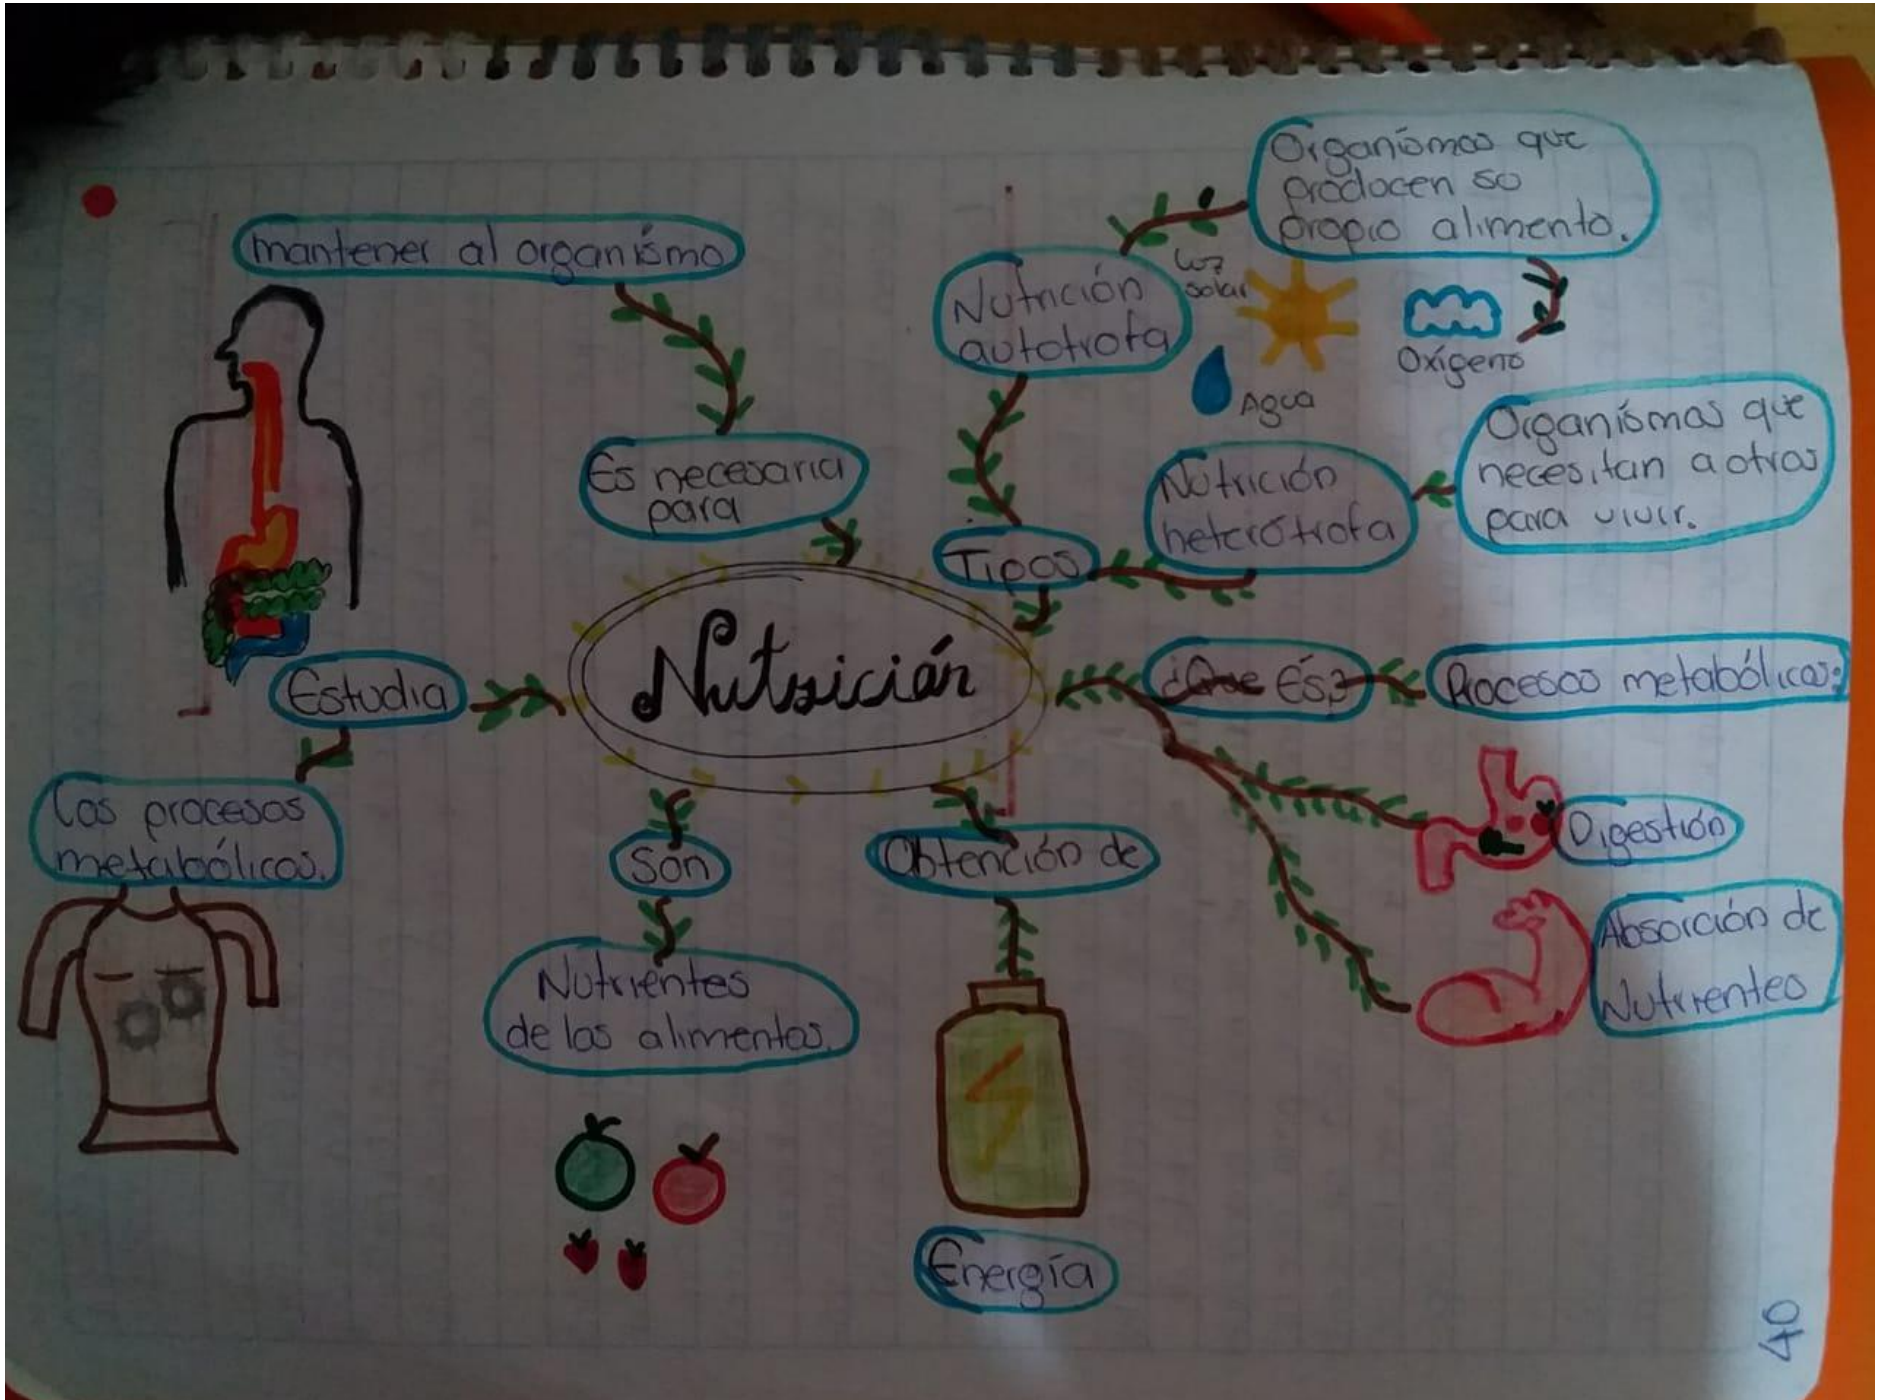 mantener al organísmo
Es necesaria
para
Nutrición
Tipos
Nutrición
autotrofa
Organísmos que
producen su
propio alimento.
Luz
solar
Agua
Oxígeno
Nutrición
heterótrofa
Organísmos que
necesitan a otros
para vivir.
¿Que És?
Procesos metabólicos:
Digestión
Absorción de
Nutrientes
Obtención de
Energía
Son
Nutrientes
de los alimentos.
Estudia
Los procesos
metabólicos.
40